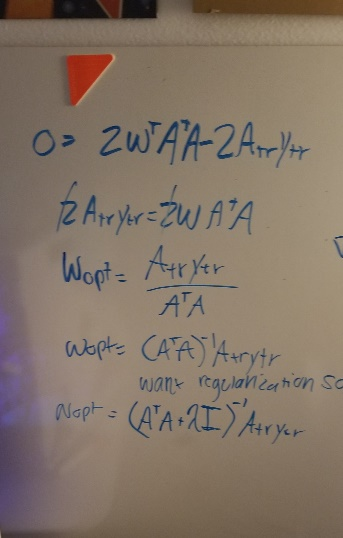 0 = 2wᵀAᵀA - 2A_tr y_tr
2 A_tr y_tr = 2 w AᵀA
w_opt = A_tr y_tr / AᵀA
w_opt = (AᵀA)⁻¹ A_tr y_tr
want regularization so
w_opt = (AᵀA + λI)⁻¹ A_tr y_tr